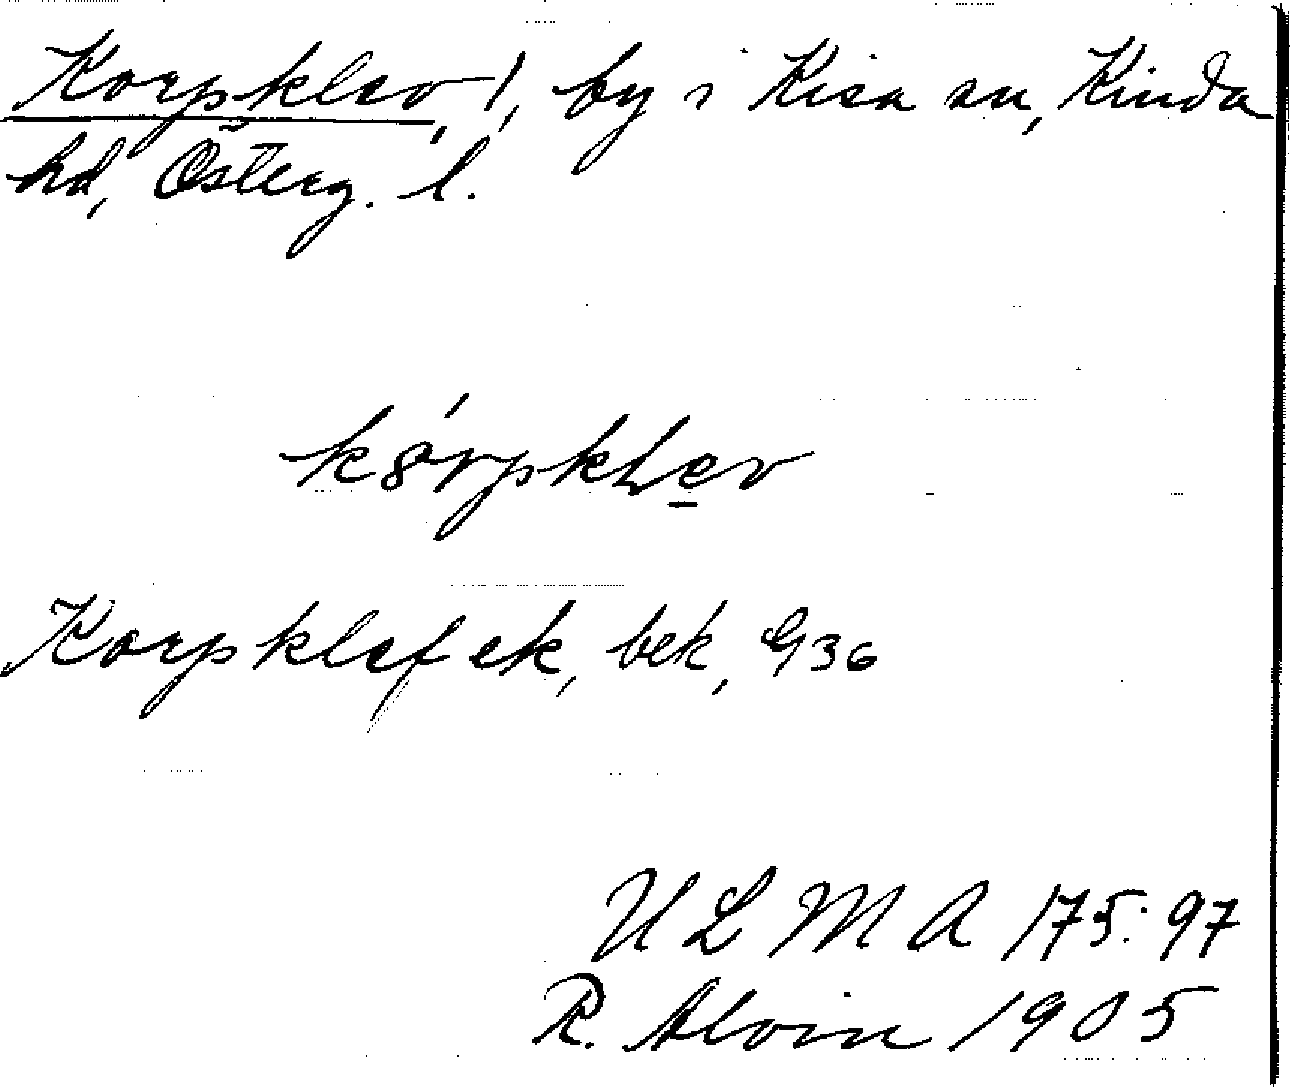 Korpklev, 1, by i Kisa sn, Kinda
hd, Österg. l.
kórpklev
Korpklef ek, bek, G 36
ULMA 175:97
R. Alvin 1905